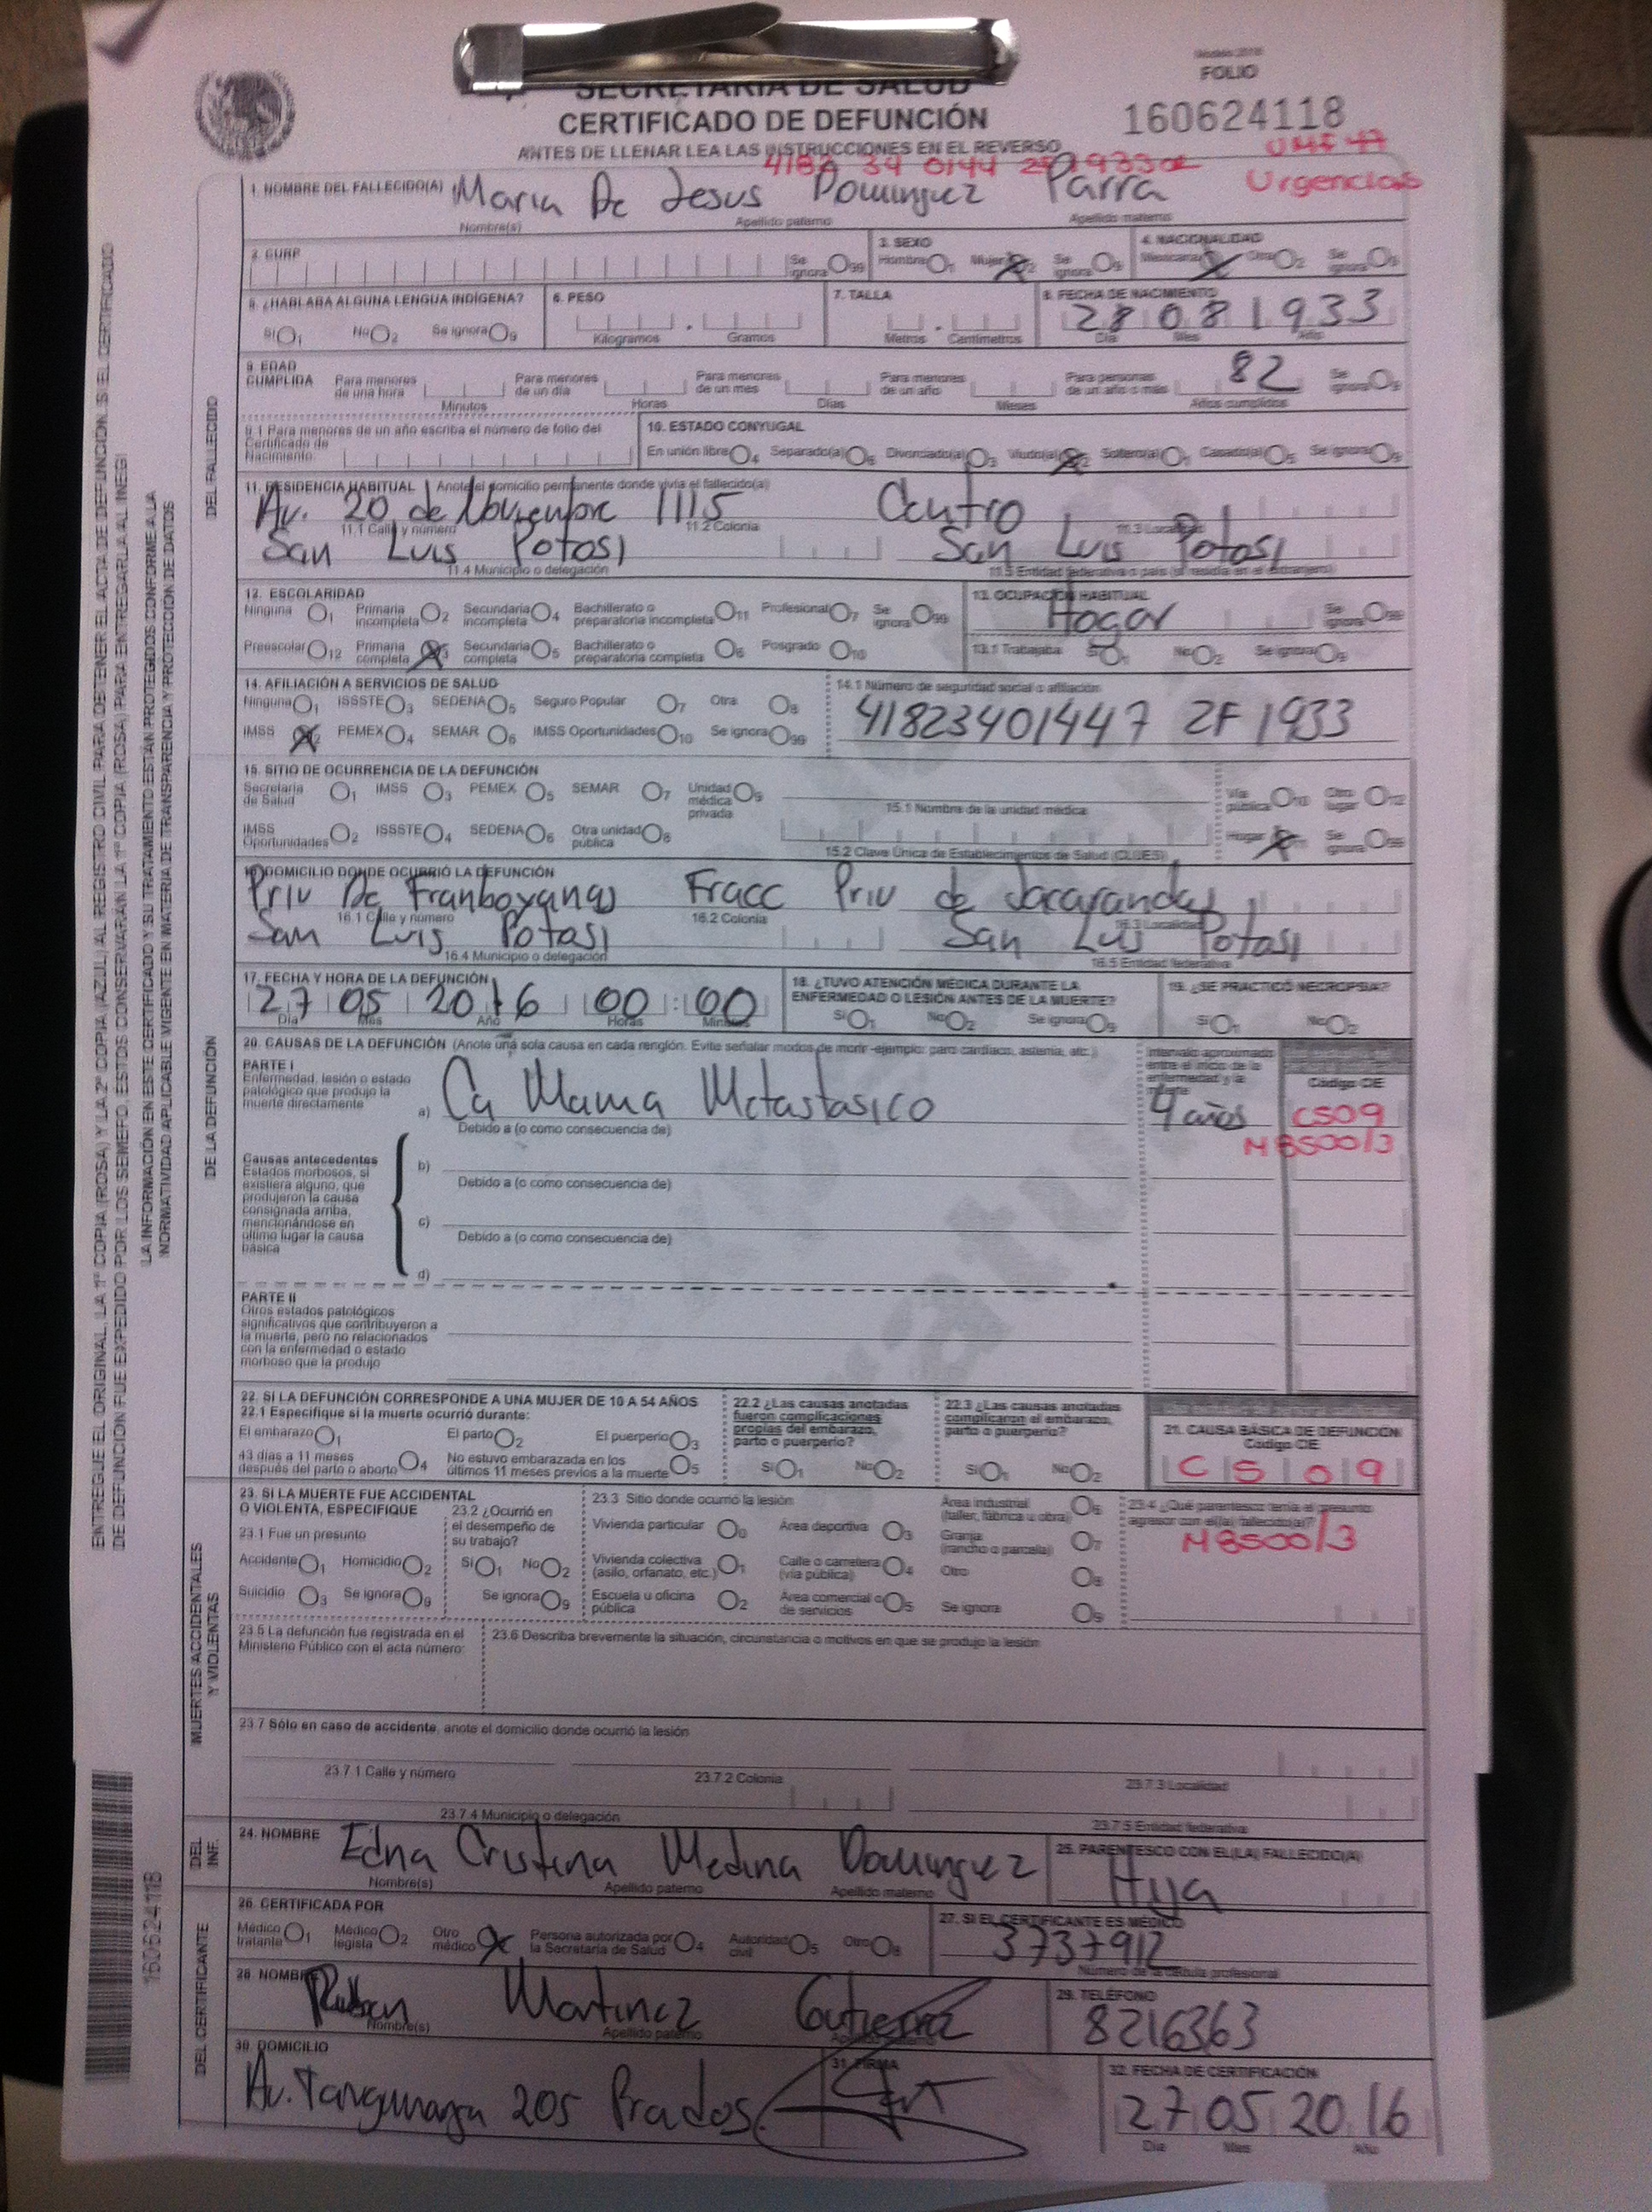 Modelo 2016
FOLIO
SECRETARÍA DE SALUD
CERTIFICADO DE DEFUNCIÓN
160624118
ANTES DE LLENAR LEA LAS INSTRUCCIONES EN EL REVERSO
UMF 47
Urgencias
1. NOMBRE DEL FALLECIDO(A) Maria De Jesus Dominguez Parra
Nombre(s) Apellido paterno Apellido materno
2. CURP Se ignora 99 3. SEXO Hombre 1 Mujer 2 Se ignora 9 4. NACIONALIDAD Mexicana Otra 2 Se ignora 9
5. ¿HABLABA ALGUNA LENGUA INDÍGENA? 6. PESO 7. TALLA 8. FECHA DE NACIMIENTO
28 08 1933
Sí 1 No 2 Se ignora 9 Kilogramos Gramos Metros Centímetros Día Mes Año
9. EDAD CUMPLIDA Para menores de una hora Para menores de un día Para menores de un mes Para menores de un año Para personas de un año o más 82 Se ignora
Minutos Horas Días Meses Años cumplidos
9.1 Para menores de un año escriba el número de folio del Certificado de Nacimiento:
10. ESTADO CONYUGAL
En unión libre 4 Separado(a) 6 Divorciado(a) 3 Viudo(a) 2 Soltero(a) 1 Casado(a) 5 Se ignora 9
11. RESIDENCIA HABITUAL Anote el domicilio permanente donde vivía el fallecido(a)
Av. 20 de Noviembre 1115 Centro
11.1 Calle y número 11.2 Colonia 11.3 Localidad
San Luis Potosi San Luis Potosi
11.4 Municipio o delegación 11.5 Entidad federativa o país (si residía en el extranjero)
12. ESCOLARIDAD 13. OCUPACIÓN HABITUAL
Hogar Se ignora
Ninguna 1 Primaria incompleta 2 Secundaria incompleta 4 Bachillerato o preparatoria incompleta 11 Profesional 7 Se ignora 99
Preescolar 12 Primaria completa 3 Secundaria completa 5 Bachillerato o preparatoria completa 6 Posgrado 10 13.1 Trabajaba Sí 1 No 2 Se ignora 9
14. AFILIACIÓN A SERVICIOS DE SALUD 14.1 Número de seguridad social o afiliación
Ninguna 1 ISSSTE 3 SEDENA 5 Seguro Popular 7 Otra 8
41823401447 2F 1933
IMSS 2 PEMEX 4 SEMAR 6 IMSS Oportunidades 10 Se ignora 99
15. SITIO DE OCURRENCIA DE LA DEFUNCIÓN
Secretaría de Salud 1 IMSS 3 PEMEX 5 SEMAR 7 Unidad médica privada 9 Vía pública 10 Otro lugar 12
15.1 Nombre de la unidad médica
IMSS Oportunidades 2 ISSSTE 4 SEDENA 6 Otra unidad pública 8 Hogar 11 Se ignora 99
15.2 Clave Única de Establecimientos de Salud (CLUES)
16. DOMICILIO DONDE OCURRIÓ LA DEFUNCIÓN
Priv De Franboyanes Fracc Priv de Jacarandas
16.1 Calle y número 16.2 Colonia 16.3 Localidad
San Luis Potosi San Luis Potosi
16.4 Municipio o delegación 16.5 Entidad federativa
17. FECHA Y HORA DE LA DEFUNCIÓN 18. ¿TUVO ATENCIÓN MÉDICA DURANTE LA ENFERMEDAD O LESIÓN ANTES DE LA MUERTE? 19. ¿SE PRACTICÓ NECROPSIA?
27 05 2016 00:00
Día Mes Año Horas Minutos Sí 1 No 2 Se ignora 9 Sí 1 No 2
20. CAUSAS DE LA DEFUNCIÓN (Anote una sola causa en cada renglón. Evite señalar modos de morir -ejemplo: paro cardiaco, astenia, etc.)
Intervalo aproximado entre el inicio de la enfermedad y la muerte Código CIE
PARTE I
Enfermedad, lesión o estado patológico que produjo la muerte directamente
a) Ca Mama Metastasico 4 años C509
Debido a (o como consecuencia de)
M8500/3
Causas antecedentes
Estados morbosos, si existiera alguno, que produjeron la causa consignada arriba, mencionándose en último lugar la causa básica
b)
Debido a (o como consecuencia de)
c)
Debido a (o como consecuencia de)
d)
PARTE II
Otros estados patológicos significativos que contribuyeron a la muerte, pero no relacionados con la enfermedad o estado morboso que la produjo
22. SI LA DEFUNCIÓN CORRESPONDE A UNA MUJER DE 10 A 54 AÑOS
22.1 Especifique si la muerte ocurrió durante:
El embarazo 1 El parto 2 El puerperio 3
43 días a 11 meses después del parto o aborto 4 No estuvo embarazada en los últimos 11 meses previos a la muerte 5
22.2 ¿Las causas anotadas fueron complicaciones propias del embarazo, parto o puerperio?
Sí 1 No 2
22.3 ¿Las causas anotadas complicaron el embarazo, parto o puerperio?
Sí 1 No 2
21. CAUSA BÁSICA DE DEFUNCIÓN
Código CIE
C509
M8500/3
23. SI LA MUERTE FUE ACCIDENTAL O VIOLENTA, ESPECIFIQUE
23.1 Fue un presunto
Accidente 1 Homicidio 2
Suicidio 3 Se ignora 9
23.2 ¿Ocurrió en el desempeño de su trabajo?
Sí 1 No 2
Se ignora 9
23.3 Sitio donde ocurrió la lesión
Vivienda particular 0 Área deportiva 3 Área industrial (taller, fábrica u obra) 6
Vivienda colectiva (asilo, orfanato, etc.) 1 Calle o carretera (vía pública) 4 Granja (rancho o parcela) 7
Escuela u oficina pública 2 Área comercial o de servicios 5 Otro 8
Se ignora 9
23.4 ¿Qué parentesco tenía el presunto agresor con el(la) fallecido(a)?
23.5 La defunción fue registrada en el Ministerio Público con el acta número:
23.6 Describa brevemente la situación, circunstancia o motivos en que se produjo la lesión
23.7 Sólo en caso de accidente, anote el domicilio donde ocurrió la lesión
23.7.1 Calle y número 23.7.2 Colonia 23.7.3 Localidad
23.7.4 Municipio o delegación 23.7.5 Entidad federativa
24. NOMBRE Edna Cristina Medina Dominguez 25. PARENTESCO CON EL(LA) FALLECIDO(A)
Hija
Nombre(s) Apellido paterno Apellido materno
26. CERTIFICADA POR 27. SI EL CERTIFICANTE ES MÉDICO
Médico tratante 1 Médico legista 2 Otro médico Persona autorizada por la Secretaría de Salud 4 Autoridad civil 5 Otro 8
3737912
Número de la cédula profesional
28. NOMBRE Ruben Martinez Gutierrez 29. TELÉFONO
8216363
Nombre(s) Apellido paterno Apellido materno
30. DOMICILIO 31. FIRMA 32. FECHA DE CERTIFICACIÓN
Av. 205 Prados 27 05 2016
Día Mes Año
DEL FALLECIDO
DE LA DEFUNCIÓN
MUERTES ACCIDENTALES Y VIOLENTAS
DEL INF.
DEL CERTIFICANTE
ENTREGUE EL ORIGINAL, LA 1ª COPIA (ROSA) Y LA 2ª COPIA (AZUL) AL REGISTRO CIVIL PARA OBTENER EL ACTA DE DEFUNCIÓN. SI EL CERTIFICADO
DE DEFUNCIÓN FUE EXPEDIDO POR LOS SEMEFO, ESTOS CONSERVARÁN LA 1ª COPIA (ROSA) PARA ENTREGARLA AL INEGI
LA INFORMACIÓN EN ESTE CERTIFICADO Y SU TRATAMIENTO ESTÁN PROTEGIDOS CONFORME A LA
NORMATIVIDAD APLICABLE VIGENTE EN MATERIA DE TRANSPARENCIA Y PROTECCIÓN DE DATOS
160624118